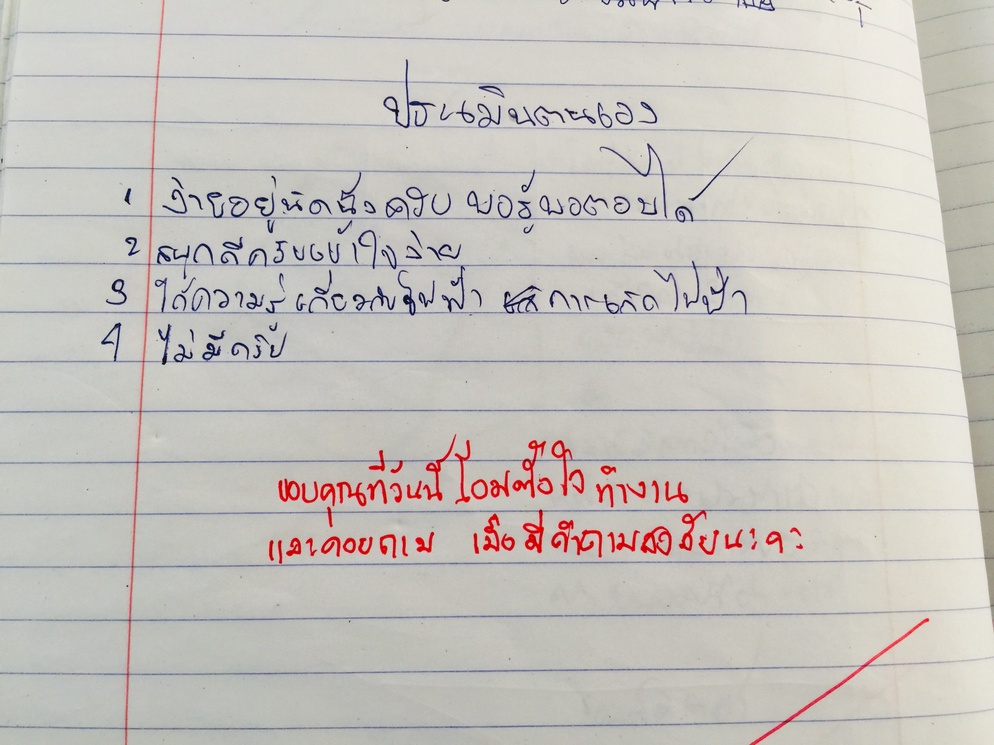 ประเมินตนเอง
1 ง่ายอยู่นิดนึงครับ พอรู้พอตอบได้
2 สนุกดีครับเข้าใจง่าย
3 ได้ความรู้เกี่ยวกับไฟฟ้า การเกิดไฟฟ้า
4 ไม่มีครับ
ขอบคุณที่วันนี้โอมตั้งใจ ทำงาน
และคอยถาม เมื่อมีคำถามสงสัยนะคะ